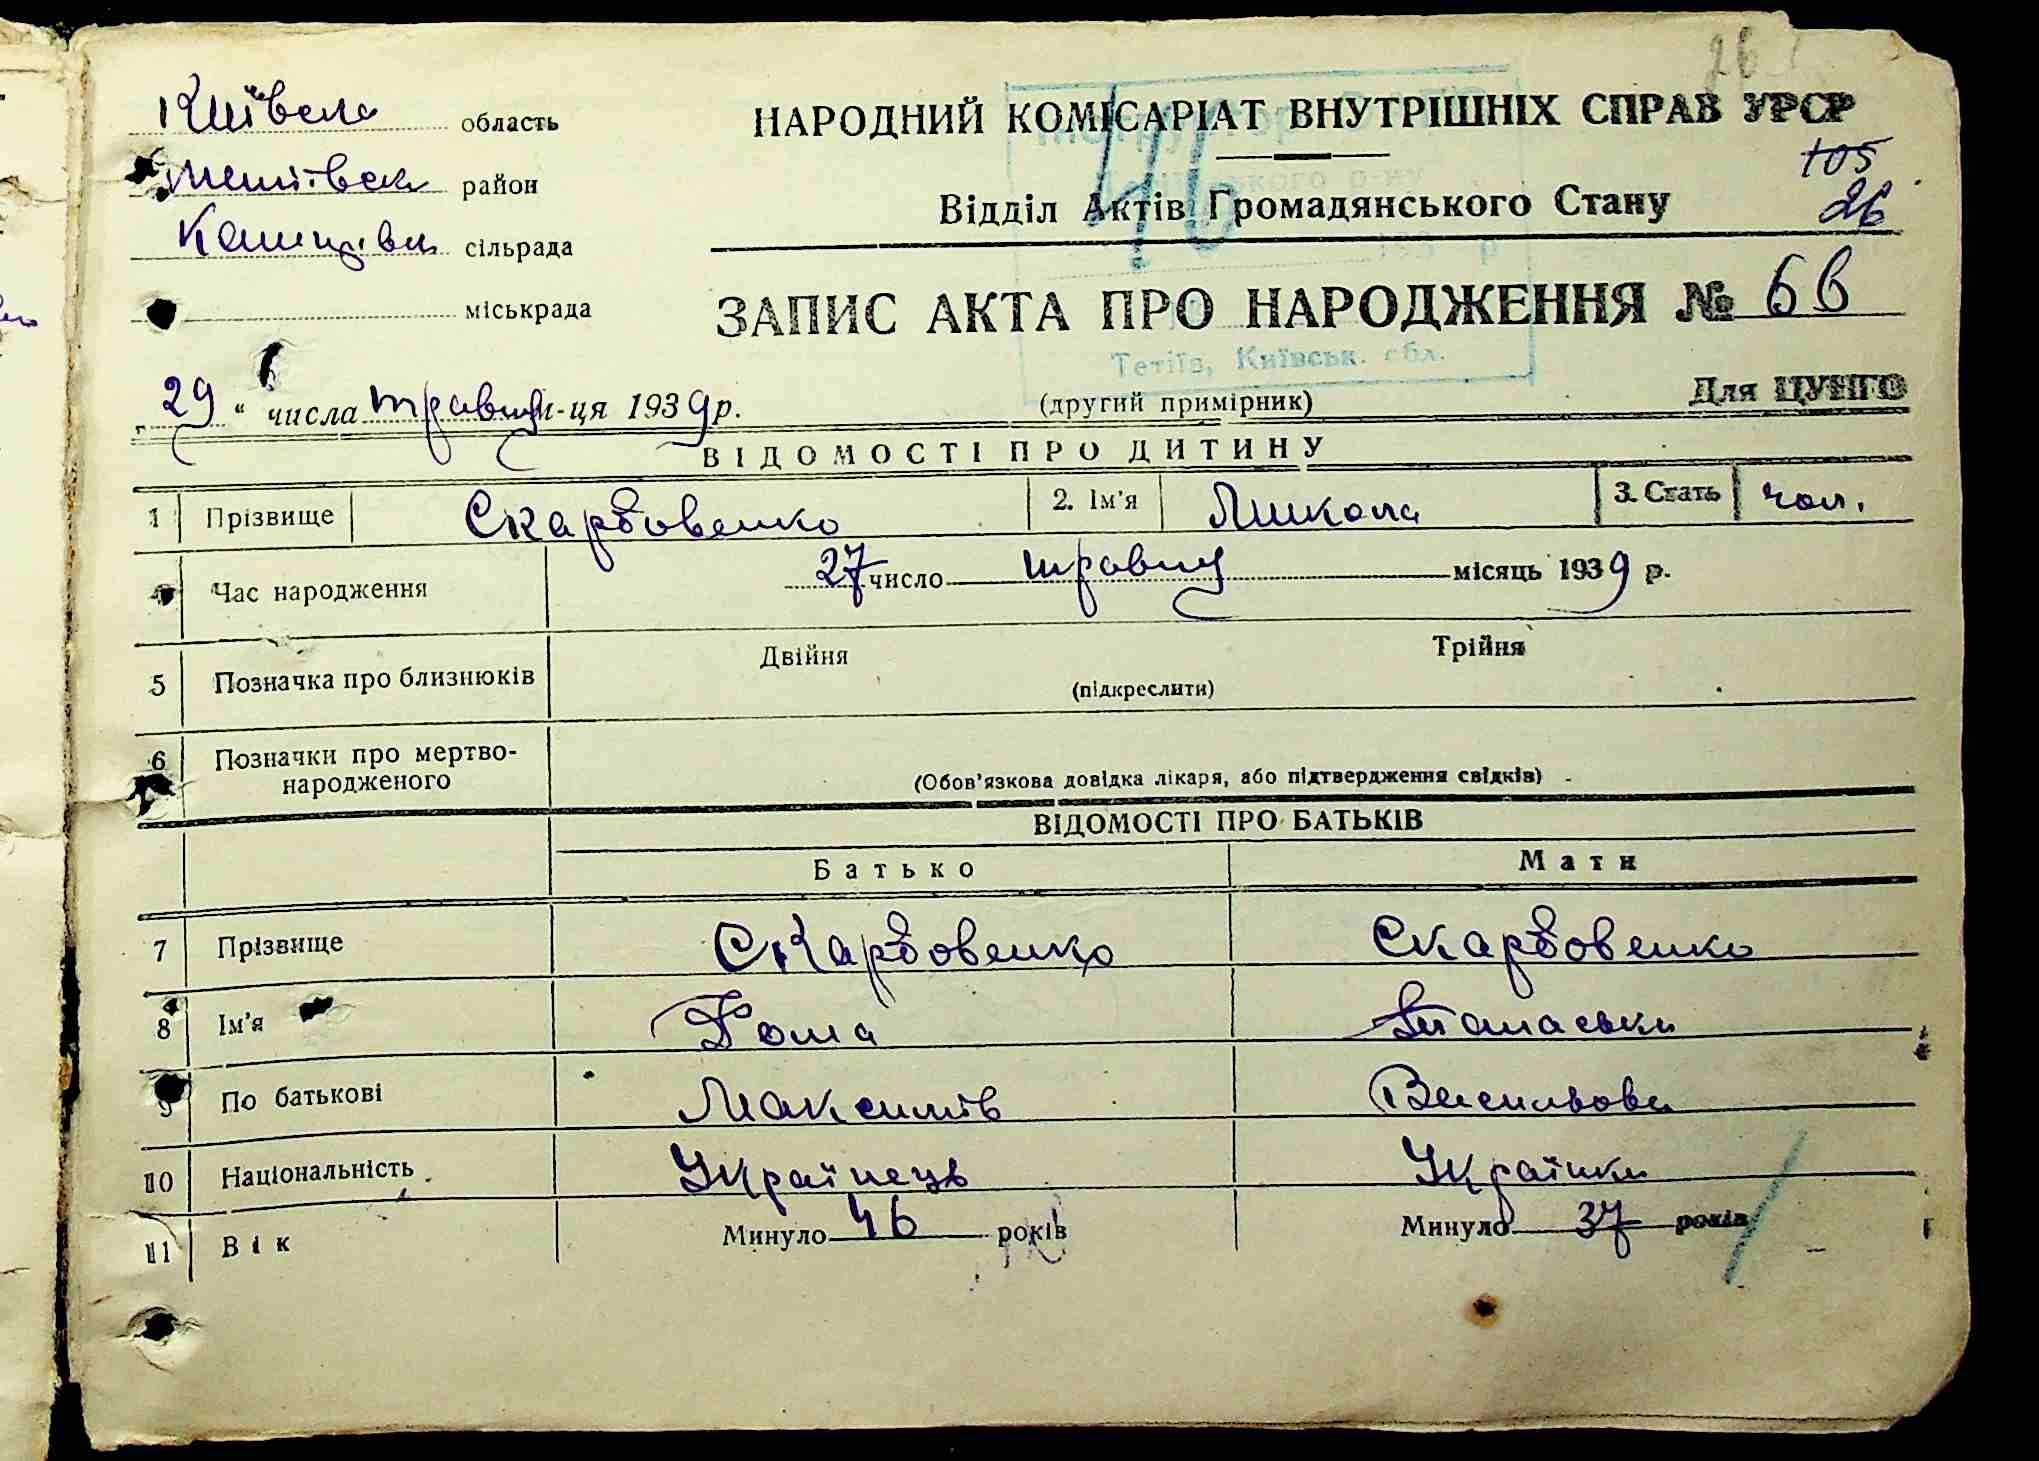 26
Київська область
НАРОДНИЙ КОМІСАРІАТ ВНУТРІШНІХ СПРАВ УРСР
105
Тетіївськ район
Відділ Актів Громадянського Стану
26
сільрада
міськрада
ЗАПИС АКТА ПРО НАРОДЖЕННЯ №
Тетіїв, Київськ. обл.
29 " числа травня м-ця 1939 р.
(другий примірник)
Для ЦУНГО
ВІДОМОСТІ ПРО ДИТИНУ
1 Прізвище Скарбовенко 2. Ім'я Микола 3. Стать чол.
Час народження 27 число травня місяць 1939 р.
5 Позначка про близнюків Двійня Трійня
(підкреслити)
6 Позначки про мертво-
народженого
(Обов'язкова довідка лікаря, або підтвердження свідків)
ВІДОМОСТІ ПРО БАТЬКІВ
Батько Мати
7 Прізвище Скарбовенко Скарбовенко
8 Ім'я Фома
9 По батькові Максимів Васильова
10 Національність Українець Українка
11 Вік Минуло 46 років Минуло 37 років